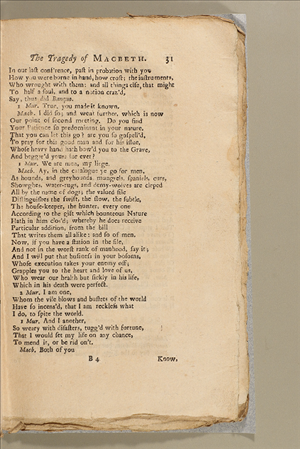 The Tragedy of MACBETH. 31
In our last conf'rence, past in probation with you
How you were borne in hand, how crost; the instruments,
Who wrought with them: and all things else, that might
To half a soul, and to a notion craz'd,
Say, thus did Banquo.
1 Mur. True, you made it known.
Macb. I did so; and went further, which is now
Our point of second meeting. Do you find
Your Patience so predominant in your nature,
That you can let this go? are you so gospell'd,
To pray for this good man and for his issue,
Whose heavy hand hath bow'd you to the Grave,
And beggar'd yours for ever?
1 Mur. We are men, my liege.
Macb. Ay, in the catalogue ye go for men,
As hounds, and greyhounds, mungrels, spaniels, curs,
Showghes, water-rugs, and demy-wolves are cleped
All by the name of dogs; the valued file
Distinguishes the swift, the slow, the subtle,
The house-keeper, the hunter, every one
According to the gift which bounteous Nature
Hath in him clos'd; whereby he does receive
Particular addition, from the bill
That writes them all alike: and so of men.
Now, if you have a station in the file,
And not in the worst rank of manhood, say it;
And I will put that business in your bosoms,
Whose execution takes your enemy off;
Grapples you to the heart and love of us,
Who wear our health but sickly in his life,
Which in his death were perfect.
2 Mur. I am one,
Whom the vile blows and buffets of the world
Have so incens'd, that I am reckless what
I do, to spite the world.
1 Mur. And I another,
So weary with disasters, tugg'd with fortune,
That I would set my life on any chance,
To mend it, or be rid on't.
Macb. Both of you
B 4 Know,